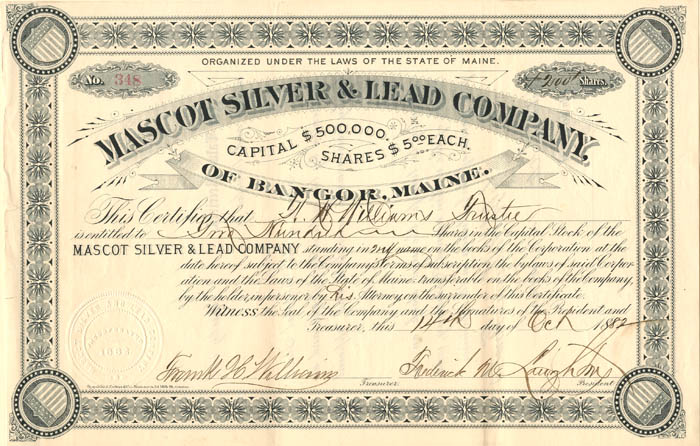 ORGANIZED UNDER THE LAWS OF THE STATE OF MAINE.
No. 348
200 Shares.
MASCOT SILVER & LEAD COMPANY,
CAPITAL $500,000. SHARES $5.00 EACH.
OF BANGOR, MAINE.
This Certifies that F. H. Williams Trustee
is entitled to Two Hundred Shares in the Capital Stock of the
MASCOT SILVER & LEAD COMPANY standing in name on the books of the Corporation at the
date hereof subject to the Company's terms of subscription, the by laws of said Corpor-
ation and the Laws of the State of Maine: transferable on the books of the Company,
by the holder, in person or by his Attorney, on the surrender of this Certificate.
Witness the Seal of the Company and the Signatures of the President and
Treasurer, this 14th day of Oct 1882
Frank H. Williams
Treasurer.
Frederick M. Laughton
President.